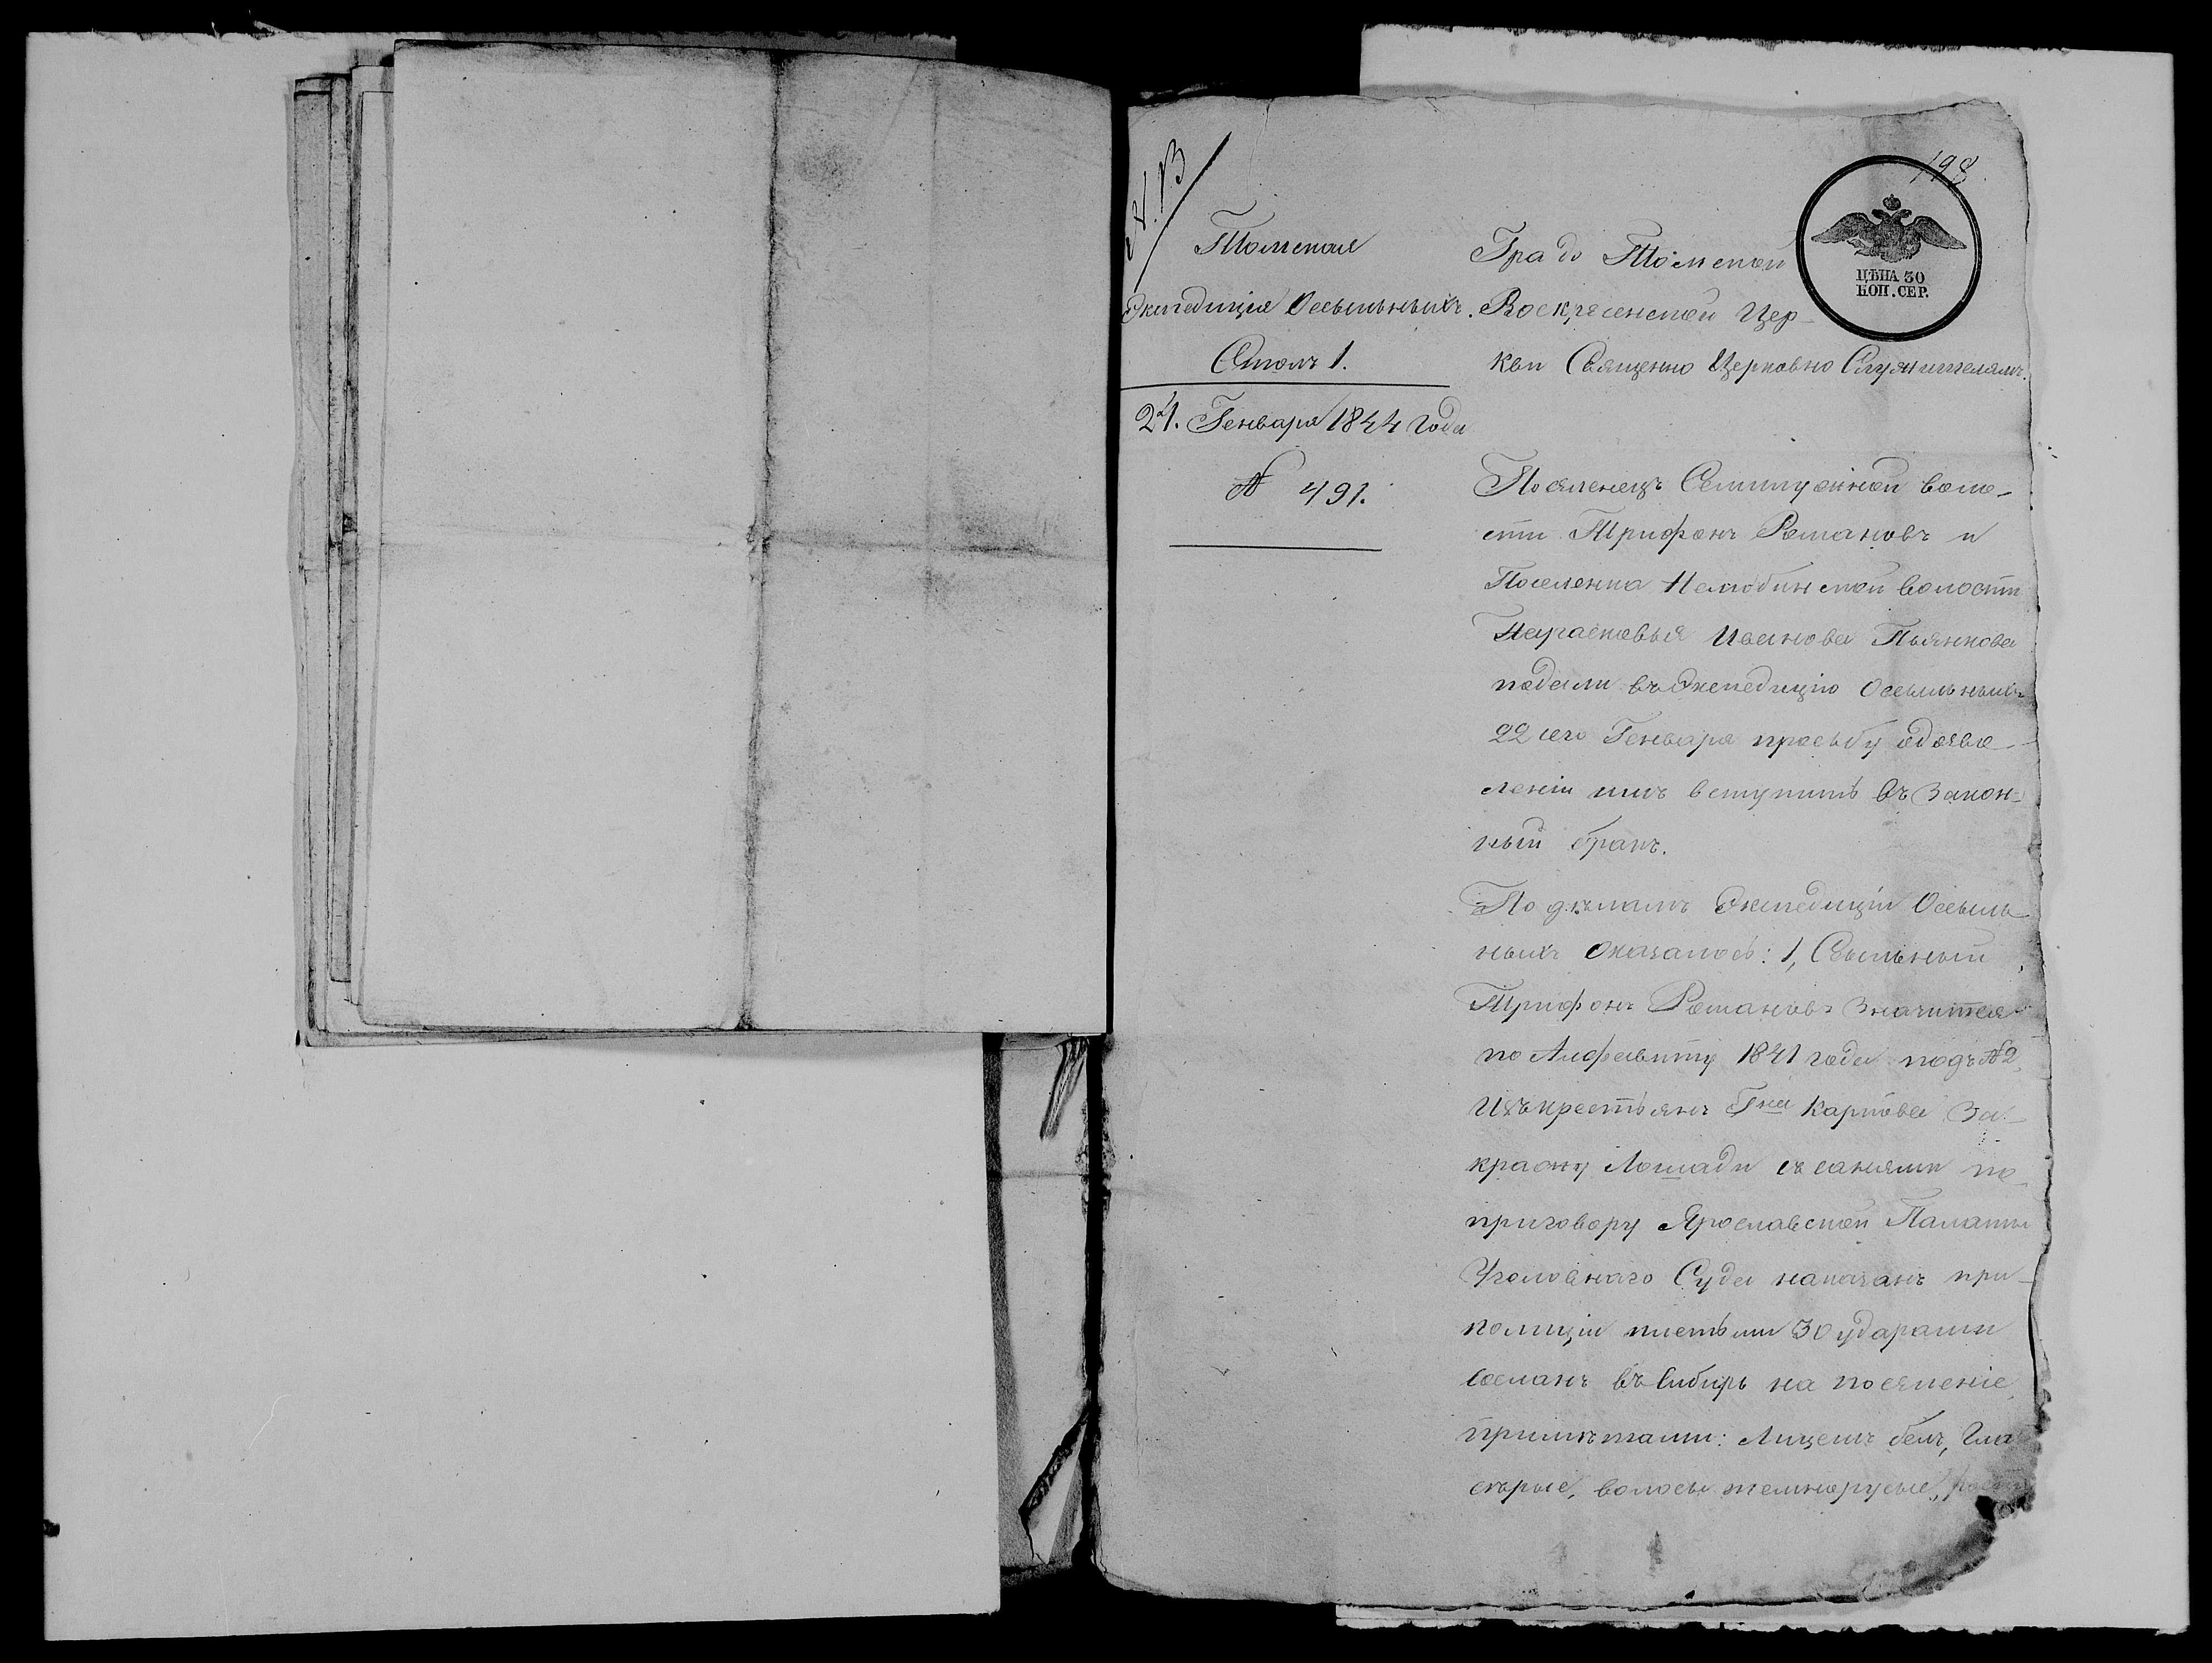 198
Томская
Экспедиція Ссыльныхъ.
Столъ 1.
24. Генваря 1844 года
№ 491.
Градо Томской
Воскресенской Цер-
кви Священно Церковно Служителямъ.
ЦѢНА 30
КОП. СЕР.
Поселенецъ Семилужной воло-
сти Трифонъ Романовъ и
Поселенка Нелюбинской волости
Парасковья Иванова Пьянкова
подали въ Экспедицію Ссыльныхъ
22 сего Генваря прозьбу одозво-
леніи имъ вступить въ Закон-
ный бракъ.
По дѣламъ Экспедиціи Ссыль-
ныхъ оказалось: 1, Ссыльный
Трифонъ Романовъ значится
по Алфавиту 1841 года подъ № 2,
Изъ крестьянъ Гна Карпова За
кражу Лошади съ санями по
приговору Ярославской Палаты
Уголовнаго Суда наказанъ при
полиціи плетьми 30 ударами
сосланъ въ Сибирь на поселеніе,
примѣтами: Лицемъ белъ, Гла
сѣрые, волосы темнорусые,